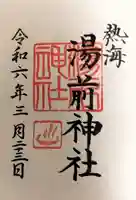 熱海
湯前神社
湯前
神社
令和六年三月二十三日